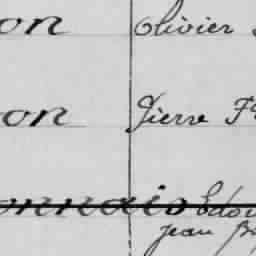 on Olivier
on Pierre Fs
onnais Edou
Jean